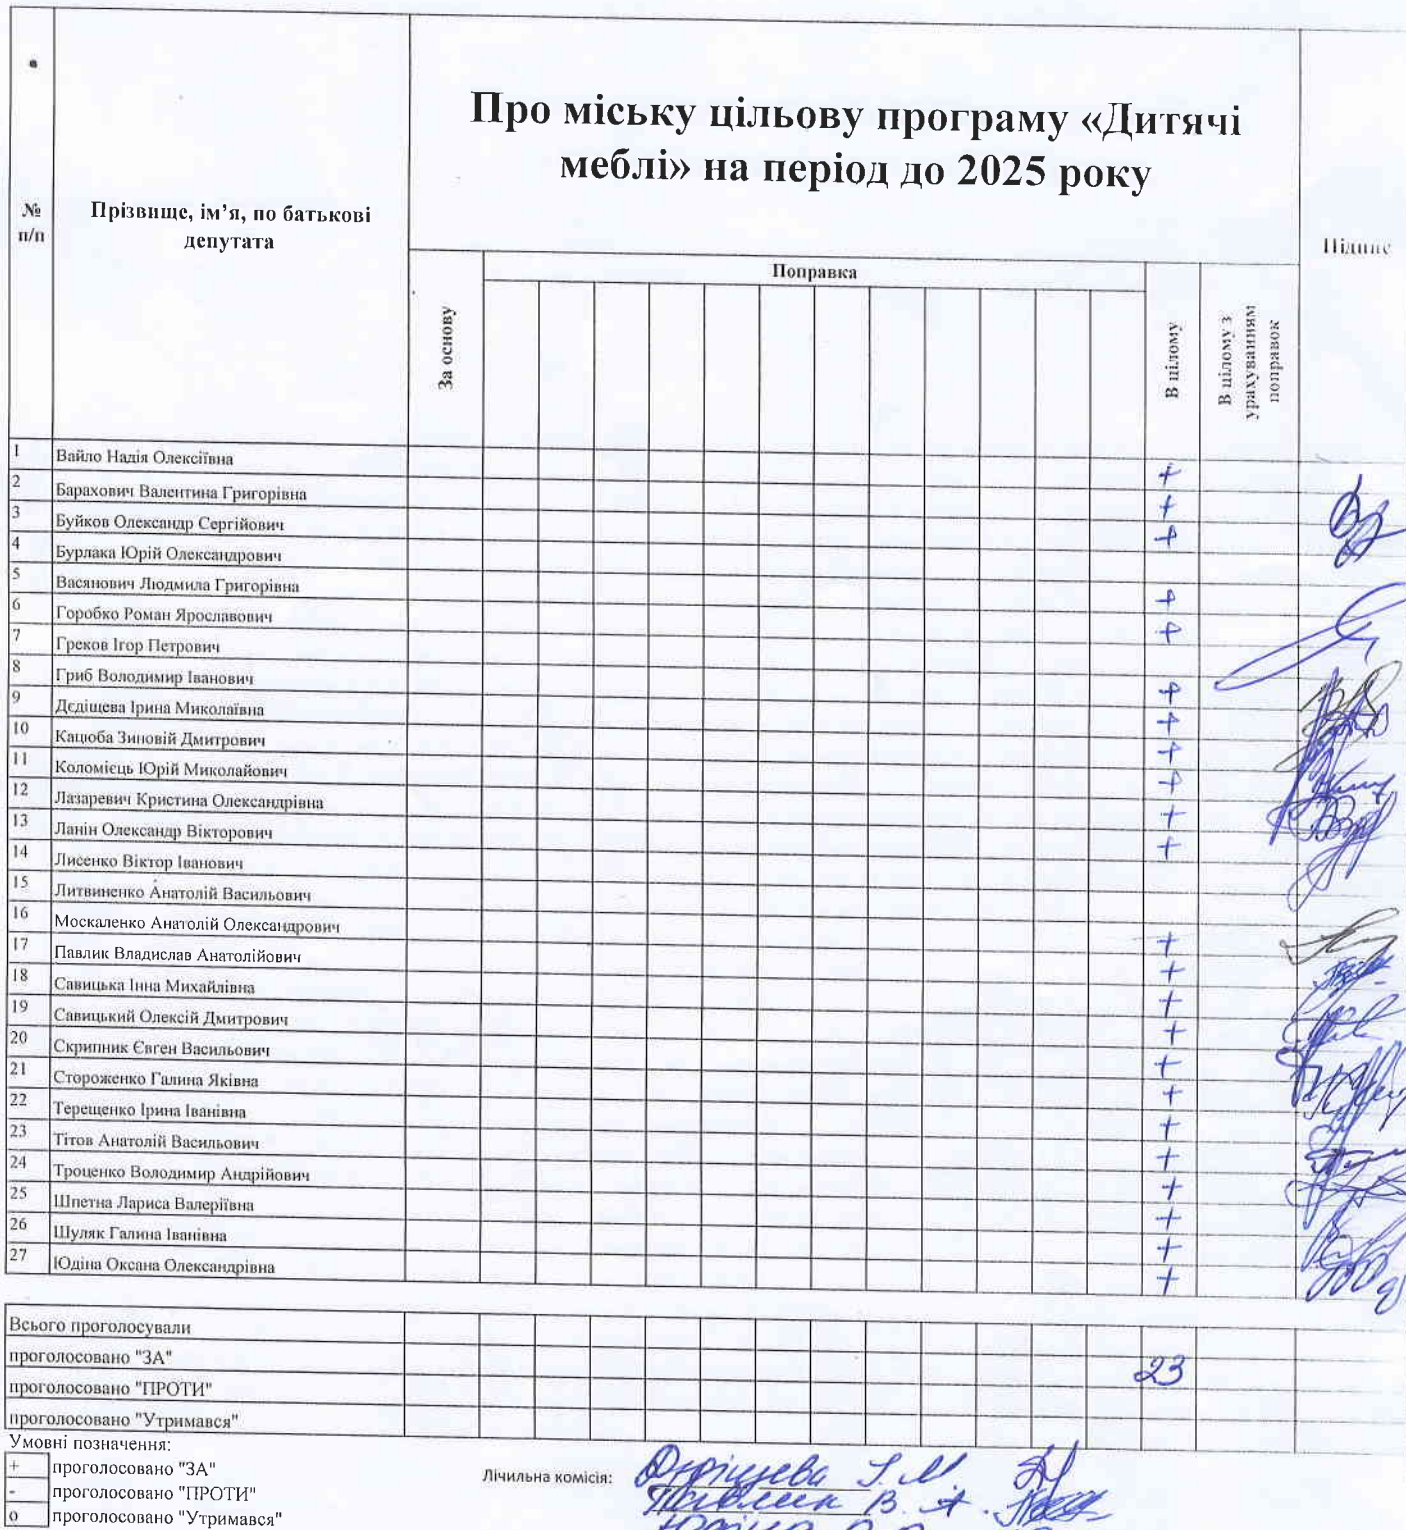 Про міську цільову програму «Дитячі
меблі» на період до 2025 року
№
п/п
Прізвище, ім’я, по батькові
депутата
Підпис
За основу
Поправка
В цілому
В цілому з
урахуванням
поправок
1 Вайло Надія Олексіївна +
2 Барахович Валентина Григорівна +
3 Буйков Олександр Сергійович +
4 Бурлака Юрій Олександрович
5 Васянович Людмила Григорівна +
6 Горобко Роман Ярославович +
7 Греков Ігор Петрович
8 Гриб Володимир Іванович +
9 Дєдіщева Ірина Миколаївна +
10 Кацюба Зиновій Дмитрович +
11 Коломієць Юрій Миколайович +
12 Лазаревич Кристина Олександрівна +
13 Ланін Олександр Вікторович +
14 Лисенко Віктор Іванович
15 Литвиненко Анатолій Васильович
16 Москаленко Анатолій Олександрович +
17 Павлик Владислав Анатолійович +
18 Савицька Інна Михайлівна +
19 Савицький Олексій Дмитрович +
20 Скрипник Євген Васильович +
21 Стороженко Галина Яківна +
22 Терещенко Ірина Іванівна +
23 Тітов Анатолій Васильович +
24 Троценко Володимир Андрійович +
25 Шпетна Лариса Валеріївна +
26 Шуляк Галина Іванівна +
27 Юдіна Оксана Олександрівна +
Всього проголосували
проголосовано "ЗА" 23
проголосовано "ПРОТИ"
проголосовано "Утримався"
Умовні позначення:
+ проголосовано "ЗА"
- проголосовано "ПРОТИ"
о проголосовано "Утримався"
Лічильна комісія: Дєдіщева І. М.
Павлик В. А.